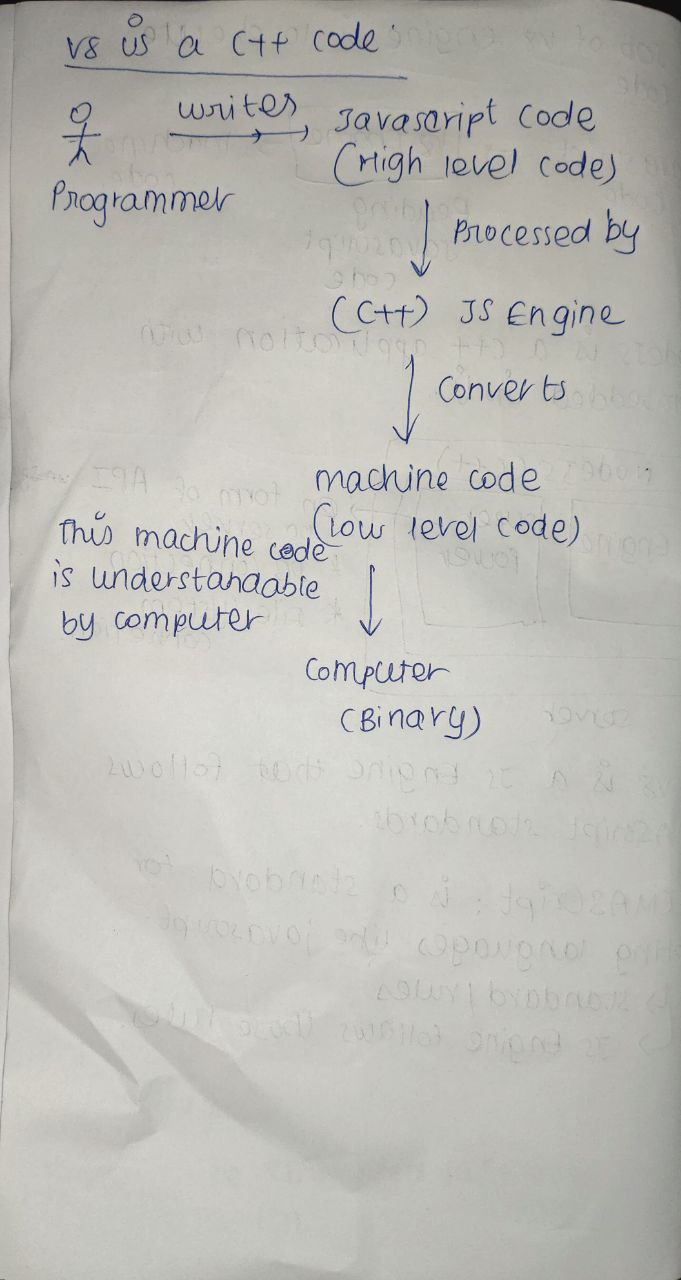 V8 is a C++ code
writes
Javascript code
(High level code)
Programmer
Processed by
(C++) JS Engine
Converts
machine code
(low level code)
This machine code
is understandable
by computer
Computer
(Binary)